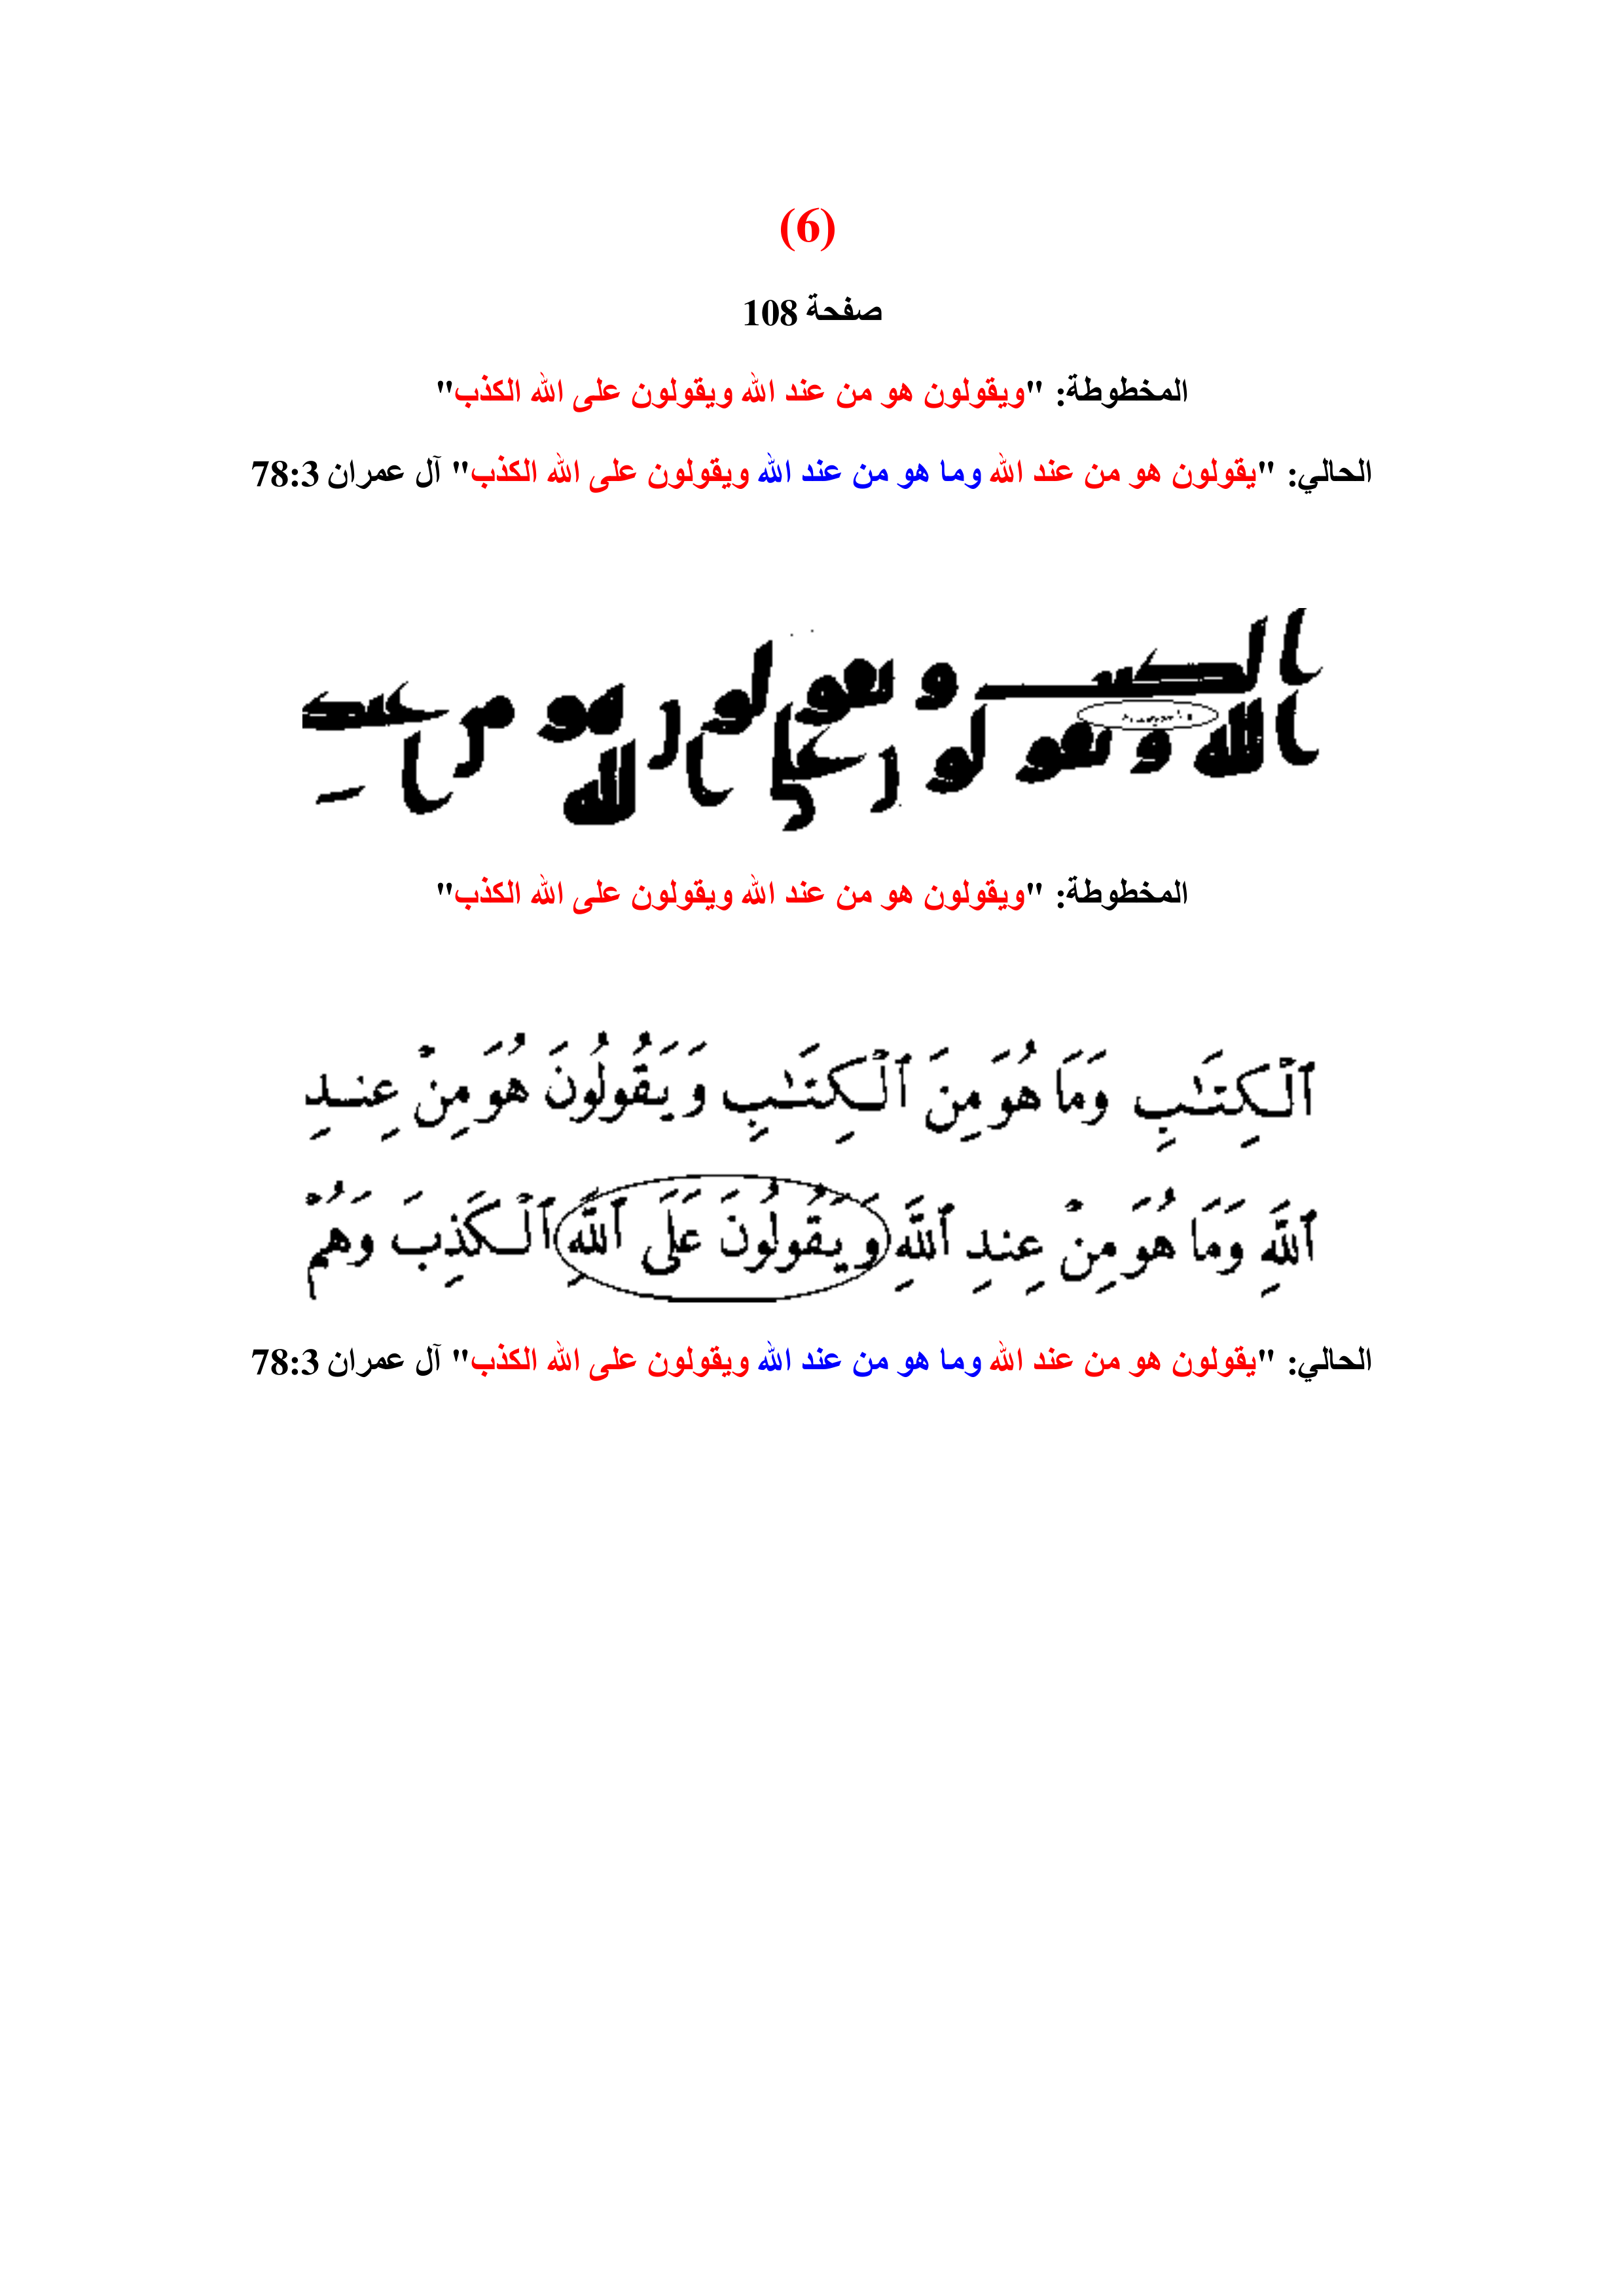 (6)
صفحة 108
المخطوطة: "ويقولون هو من عند الله ويقولون على الله الكذب"
الحالي: "يقولون هو من عند الله وما هو من عند الله ويقولون على الله الكذب" آل عمران 78:3
الكتب ويقولون هو من عند
الله ويقولون على الله ا
المخطوطة: "ويقولون هو من عند الله ويقولون على الله الكذب"
ٱلْكِتَـٰبِ وَمَا هُوَ مِنَ ٱلْكِتَـٰبِ وَيَقُولُونَ هُوَ مِنْ عِندِ
ٱللَّهِ وَمَا هُوَ مِنْ عِندِ ٱللَّهِ وَيَقُولُونَ عَلَى ٱللَّهِ ٱلْكَذِبَ وَهُمْ
الحالي: "يقولون هو من عند الله وما هو من عند الله ويقولون على الله الكذب" آل عمران 78:3